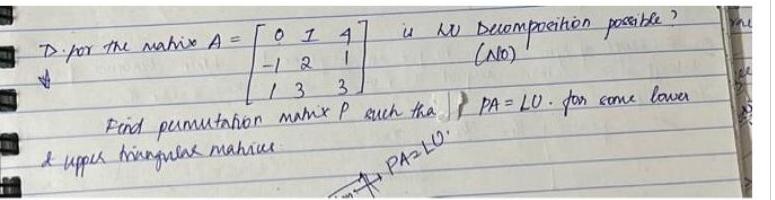 D. for the matrix A = [ 0 1 4 is LU Decomposition possible?
-1 2 1 (NO)
1 3 3 ]
Find permutation matrix P such tha PA = LU. for some lower
& upper triangular matrices
PA=LU.